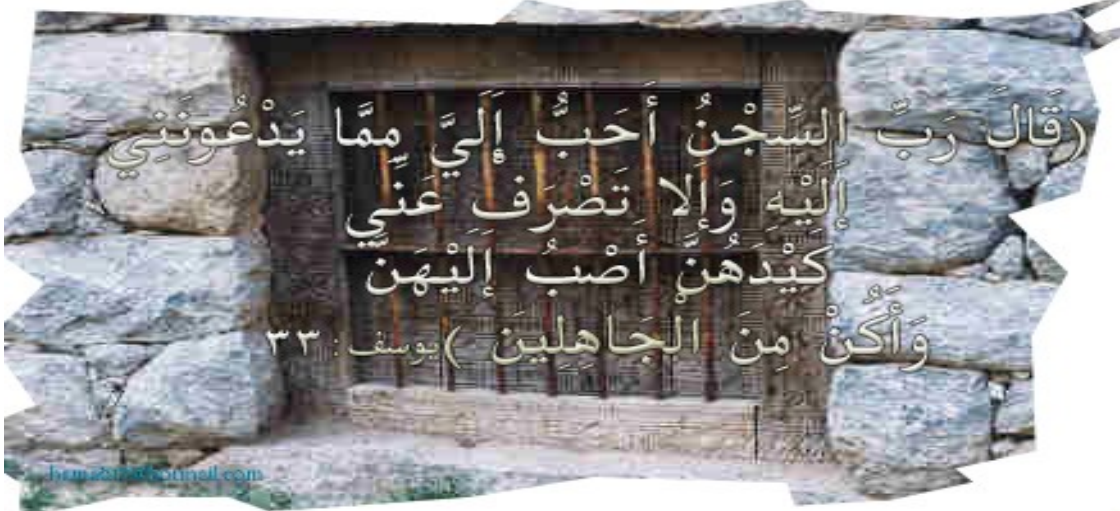 (قَالَ رَبِّ السِّجْنُ أَحَبُّ إِلَيَّ مِمَّا يَدْعُونَنِي
إِلَيْهِ وَإِلا تَصْرِفْ عَنِّي
كَيْدَهُنَّ أَصْبُ إِلَيْهِنَّ
وَأَكُنْ مِنَ الْجَاهِلِينَ )يوسف: ٣٣